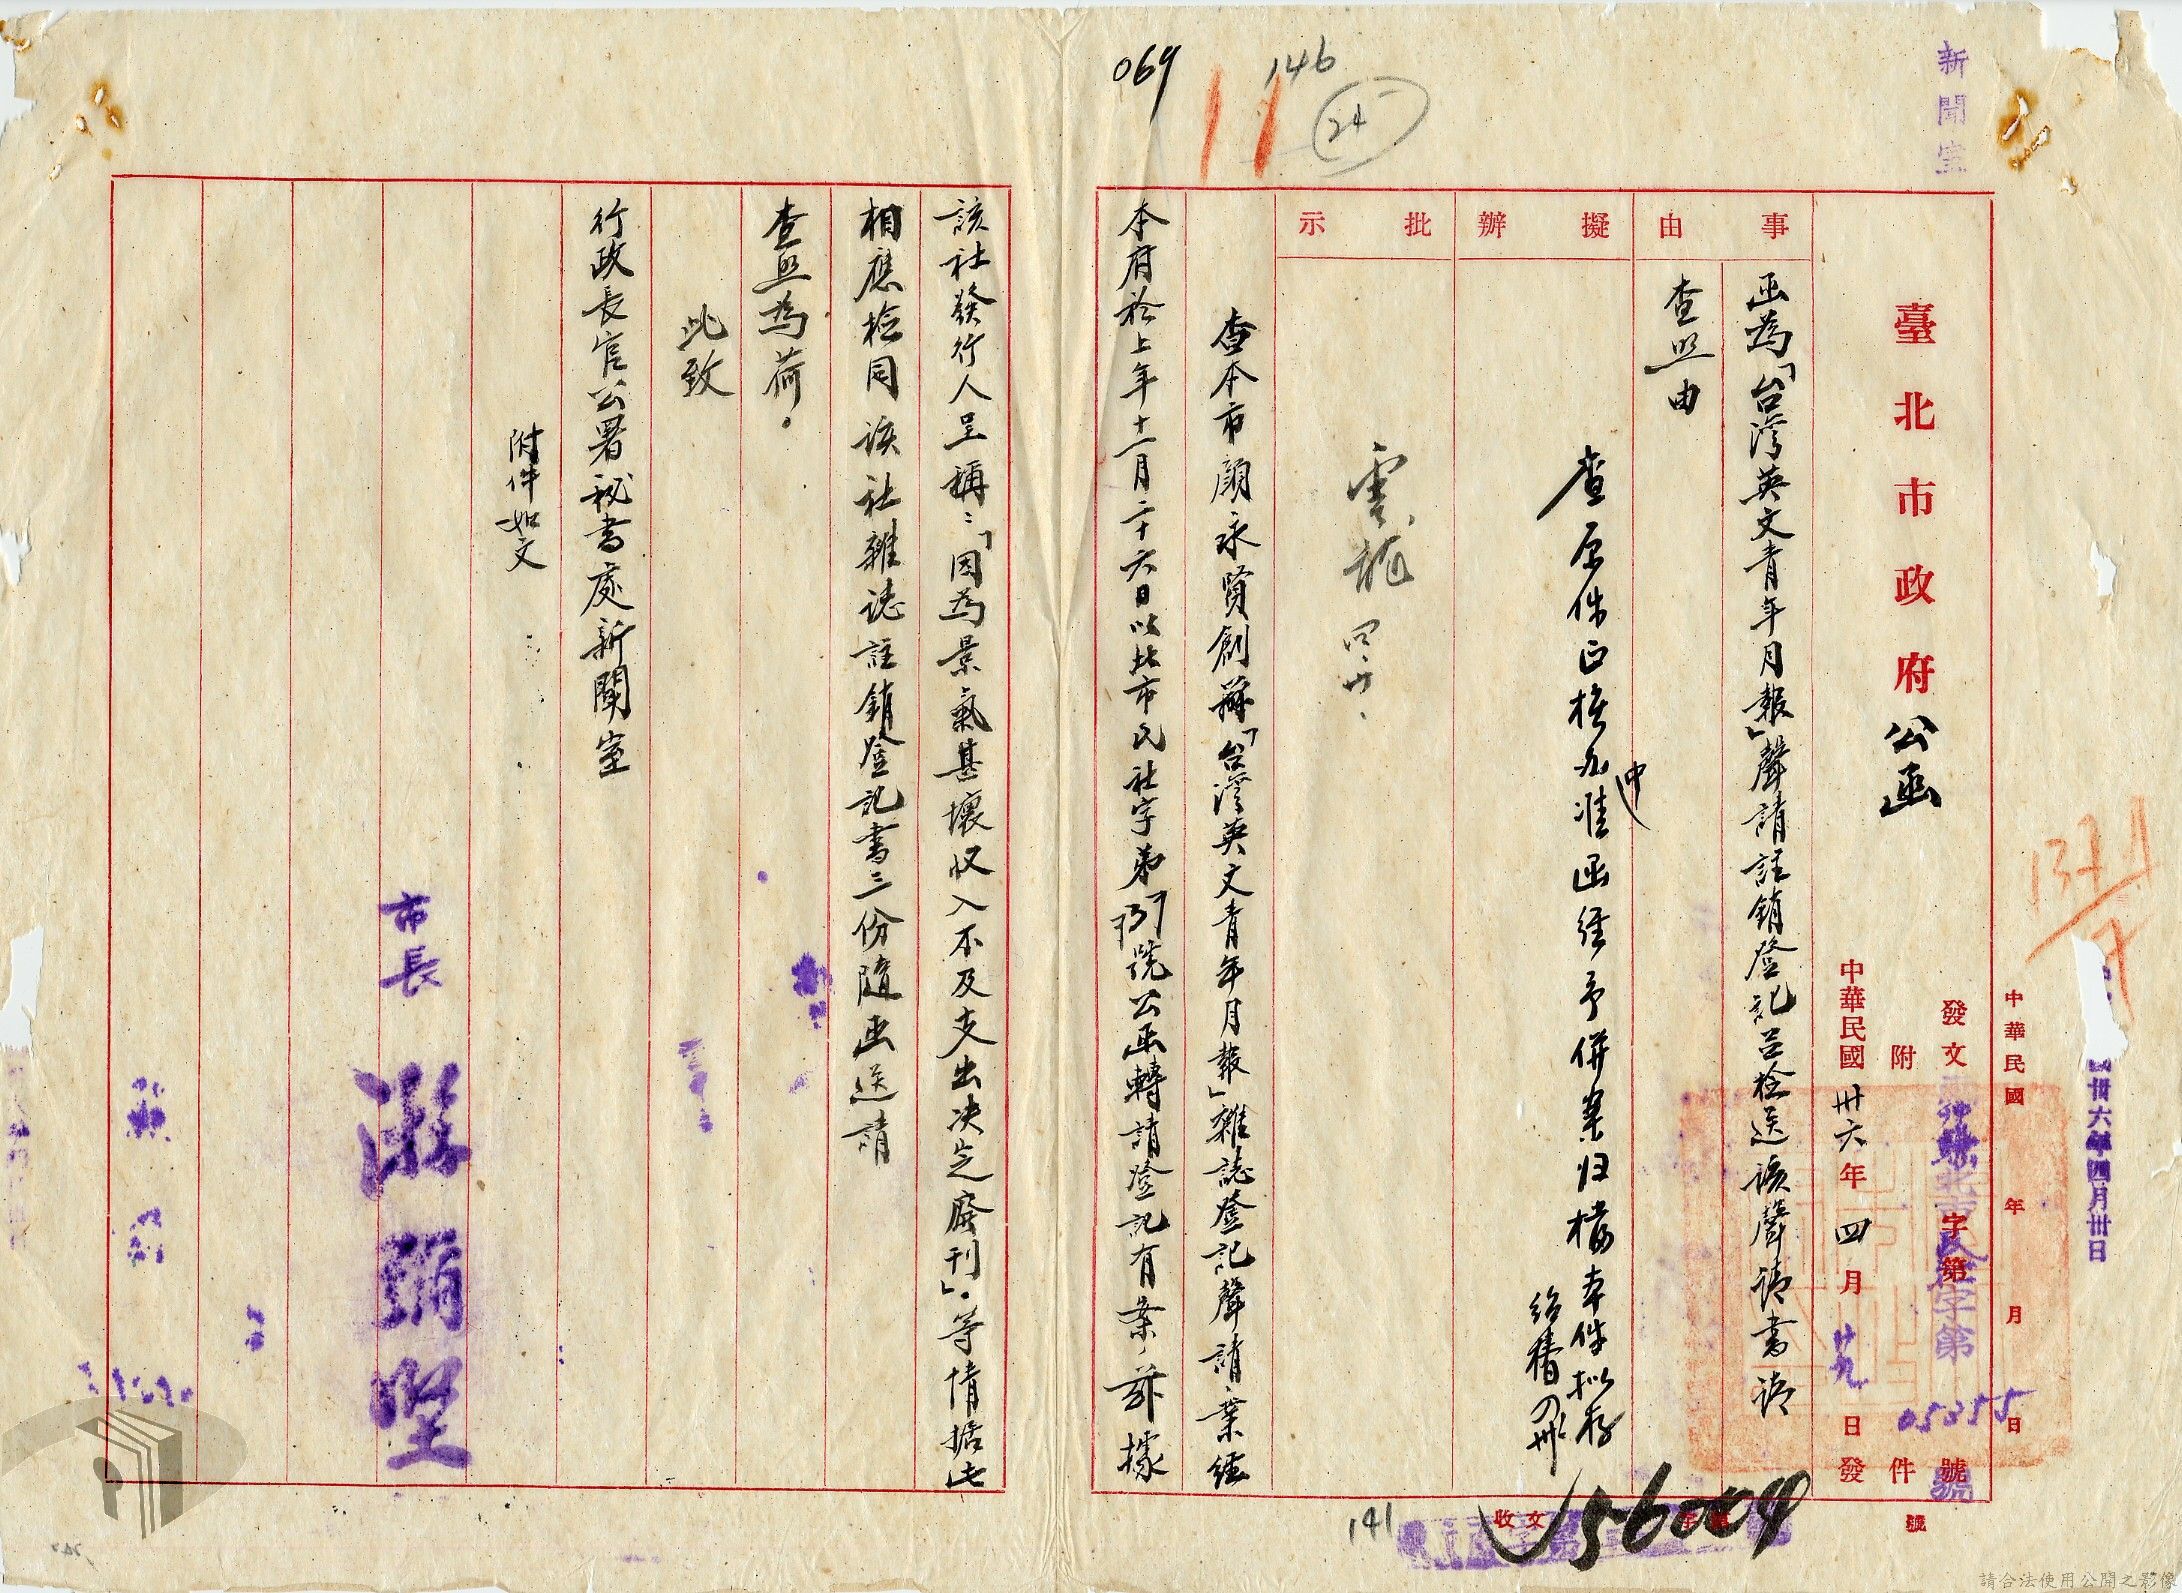 新聞室
069
146
24
臺北市政府公函
中華民國 年 月 日
卅六年四月卅日
發文 字第 號
05355
附 件
中華民國卅六年四月廿九日發
事由
函為「台灣英文青年月報」聲請註銷登記呈檢送該聲請書請
查照由
擬辦
查原件已核办中准函經予併案归檔本件拟存
批示
查本市顏永賢創辦「台灣英文青年月報」雜誌登記聲請業經
本府於上年十一月二十六日以北市民社字弟 號公函轉請登記有案,茲據
該社發行人呈稱:「因為景氣甚壞收入不及支出决定廢刊」。等情據此
相應檢同該社雜誌註銷登記書三份隨函送請
查照為荷。
此致
行政長官公署秘書處新聞室
附件如文
市長 游彌堅
收文 字 號
56004
141
請合法使用公開之影像